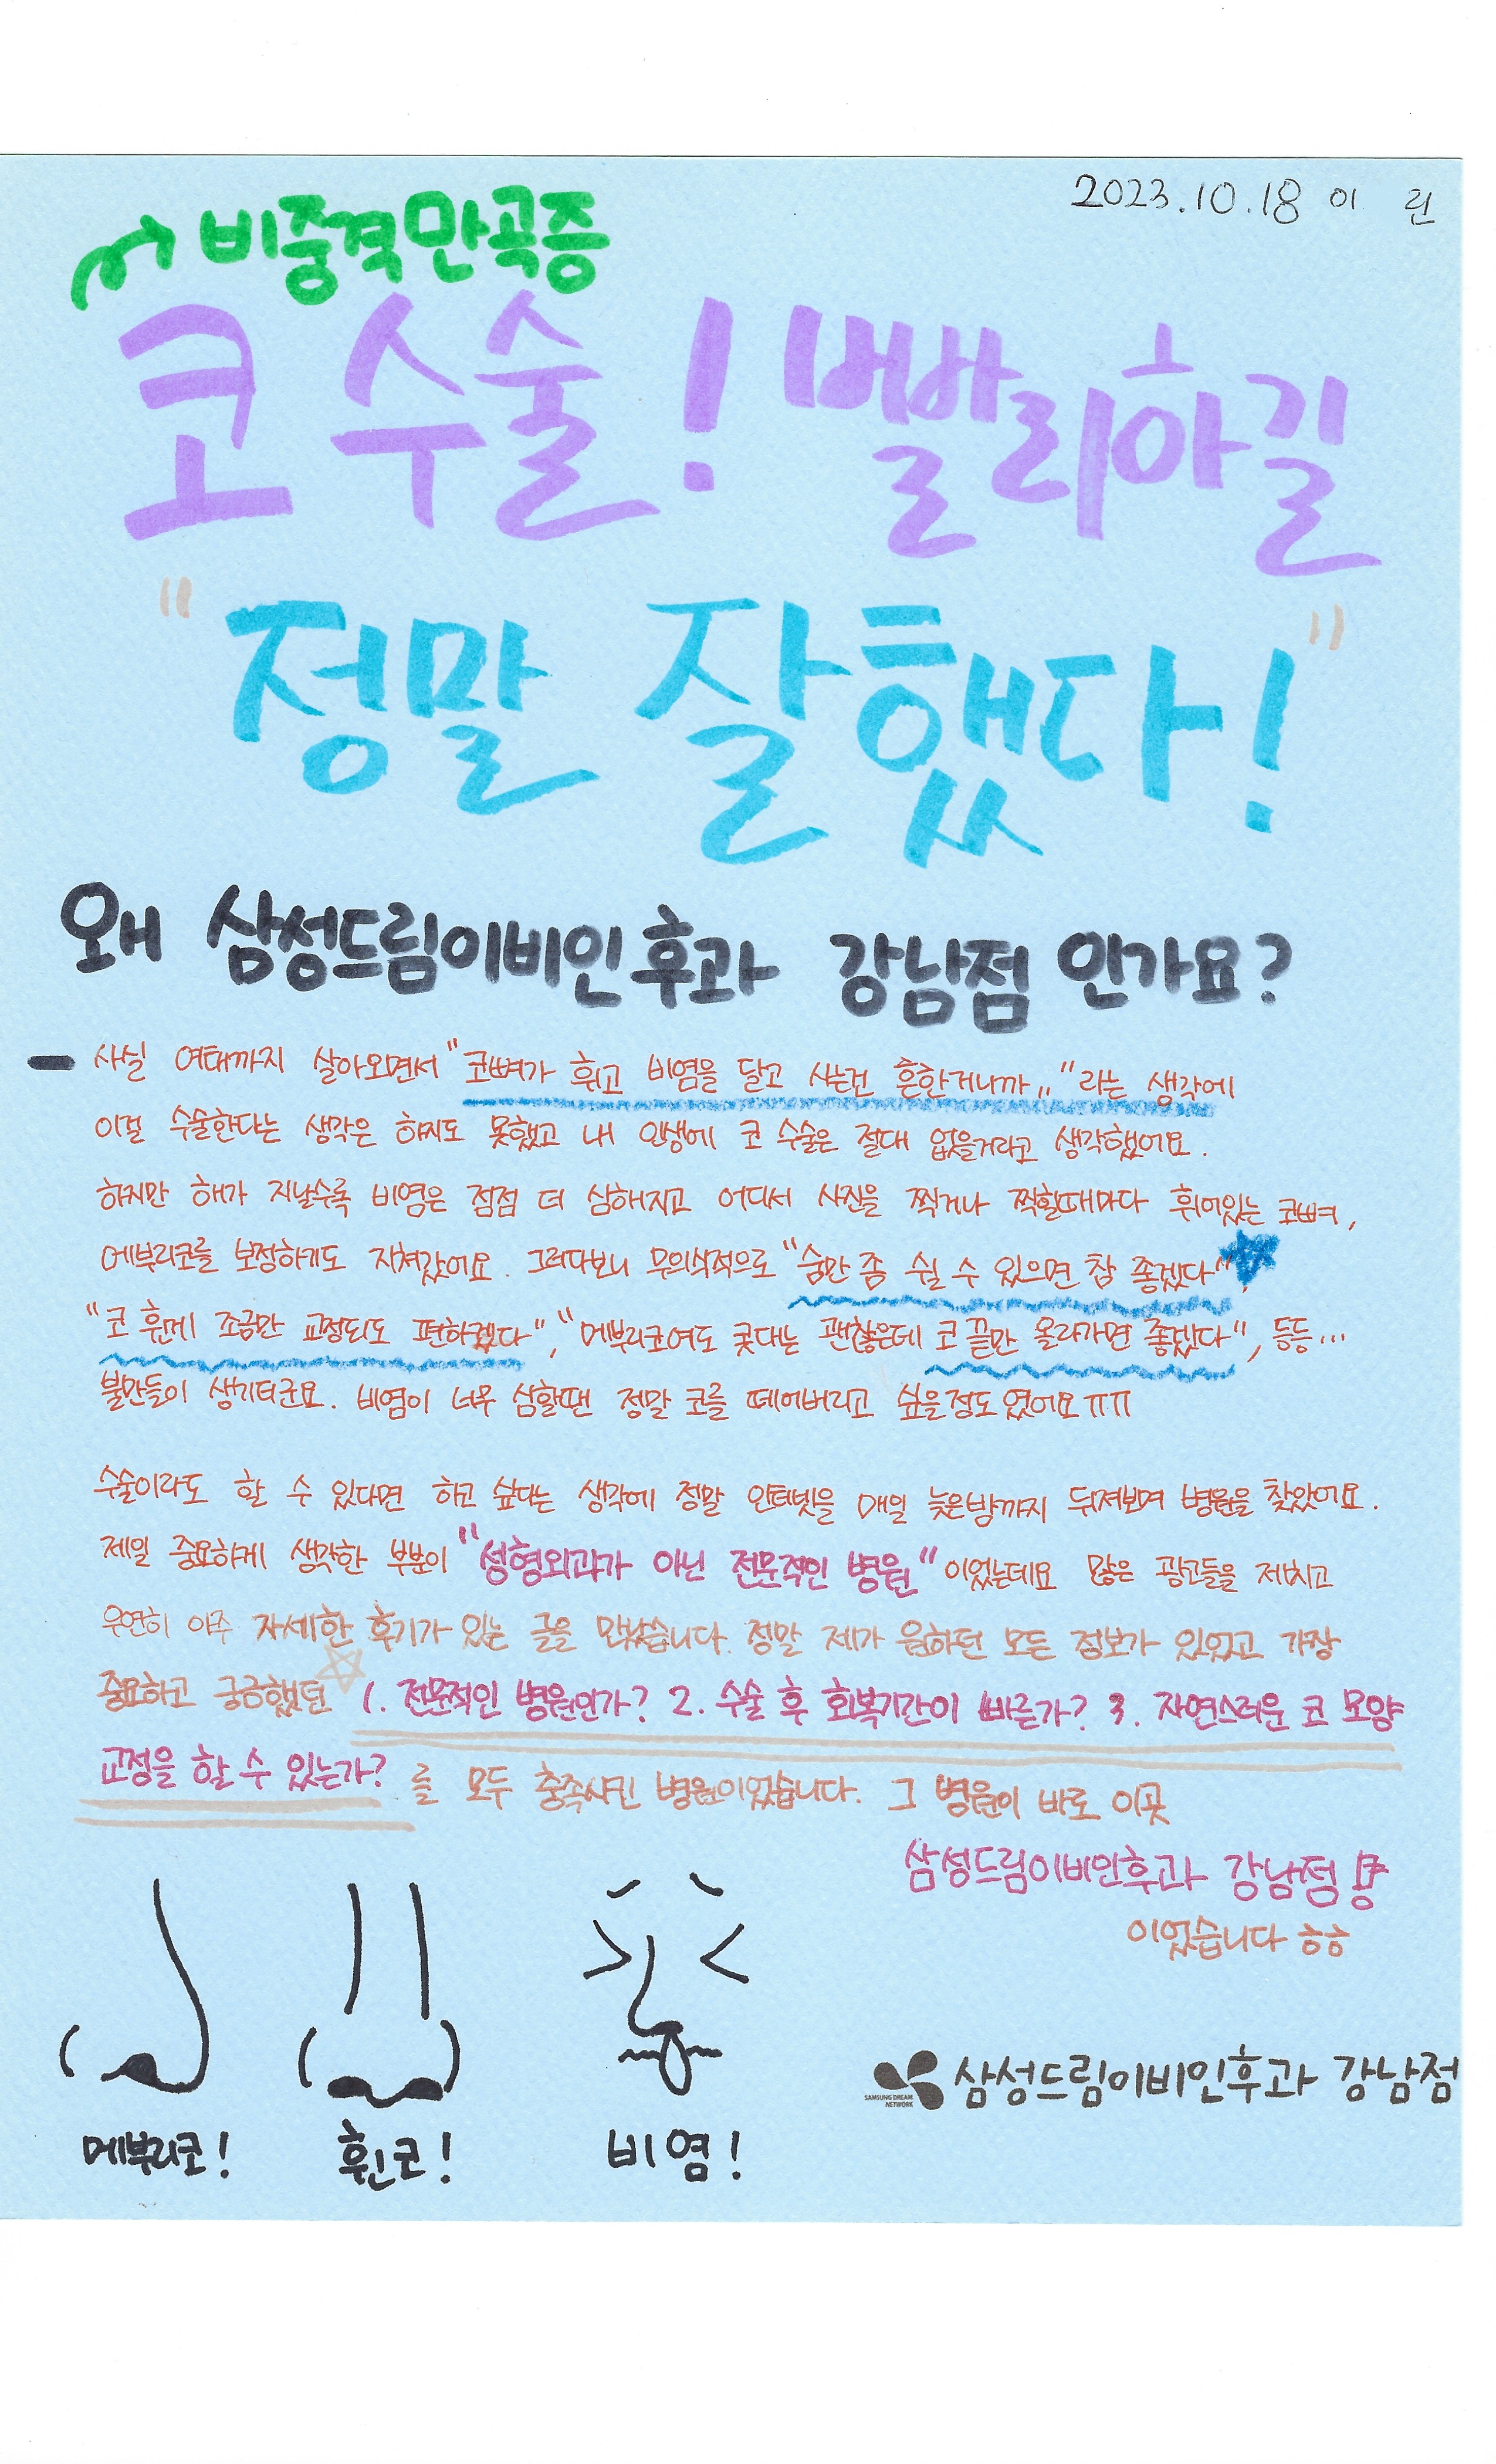 2023.10.18 이 린
비중격만곡증
코 수술! 빨리하길
"정말 잘했다!"
왜 삼성드림이비인후과 강남점 인가요?
- 사실 여태까지 살아오면서 "코뼈가 휘고 비염을 달고 사는건 흔한거니까.." 라는 생각에
이걸 수술한다는 생각은 하지도 못했고 내 인생에 코 수술은 절대 없을거라고 생각했어요.
하지만 해가 지날수록 비염은 점점 더 심해지고 어디서 사진을 찍거나 찍힐때마다 휘어있는 코뼈,
메부리코를 보정하기도 지쳐갔어요. 그러다보니 무의식적으로 "숨만 좀 쉴 수 있으면 참 좋겠다",
"코 휜게 조금만 교정되도 편하겠다", "메부리코여도 콧대는 괜찮은데 코 끝만 올라가면 좋겠다", 등등...
불만들이 생기더군요. 비염이 너무 심할땐 정말 코를 떼어버리고 싶을정도였어요ㅠㅠ
수술이라도 할 수 있다면 하고 싶다는 생각에 정말 인터넷을 매일 늦은밤까지 뒤져보며 병원을 찾았어요.
제일 중요하게 생각한 부분이 "성형외과가 아닌 전문적인 병원" 이었는데요 많은 광고들을 제치고
우연히 아주 자세한 후기가 있는 글을 만났습니다. 정말 제가 원하던 모든 정보가 있었고 가장
중요하고 궁금했던 1. 전문적인 병원인가? 2. 수술 후 회복기간이 빠른가? 3. 자연스러운 코 모양
교정을 할 수 있는가? 를 모두 충족시킨 병원이었습니다. 그 병원이 바로 이곳
삼성드림이비인후과 강남점!
이었습니다 ㅎㅎ
메부리코!
휜코!
비염!
SAMSUNG DREAM
NETWORK
삼성드림이비인후과 강남점